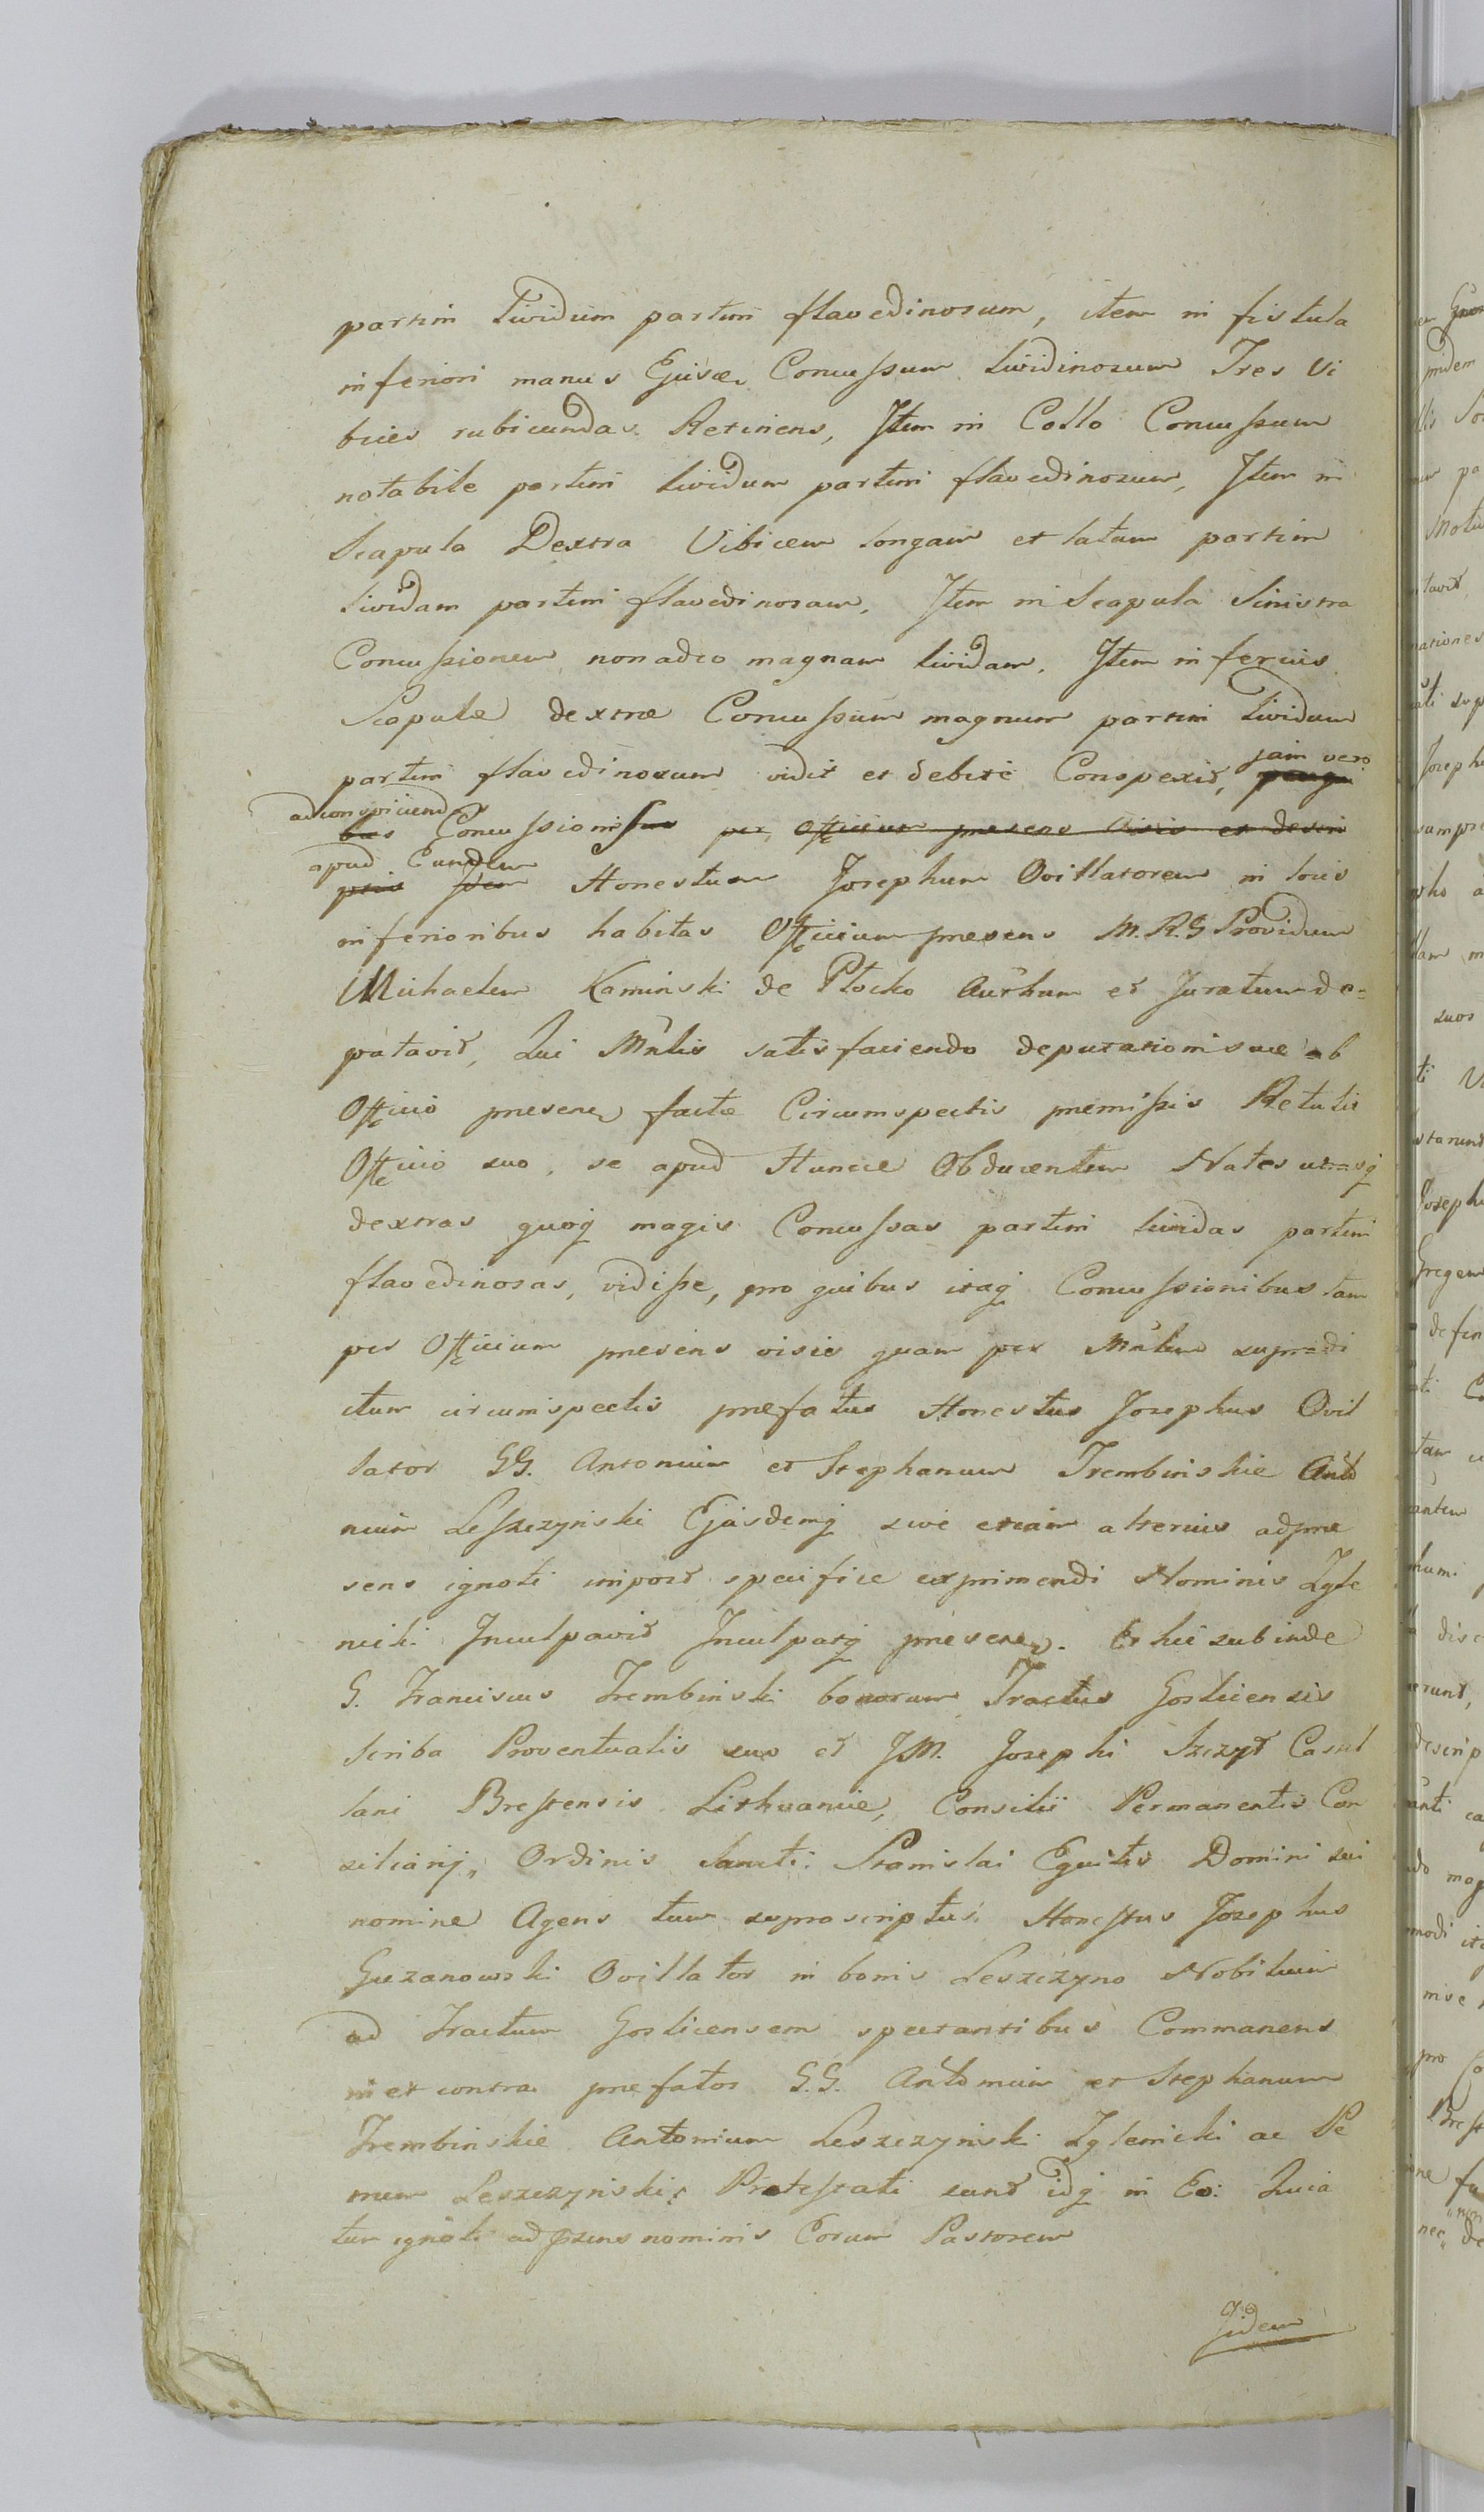 partim Lividum partim flavedinosum, item in fistula
inferiori manus Ejusdē Concussum lividinosum Tres Vi
bices rubicundas Retinens, Item in Collo Concussum
notabile partim lividum partim flavedinosum, Item in
Scapula Dextra Vibicem longam et latam partim
lividam partim flavedinosam, Item in Scapula Sinistra
Concussionem non adeo magnam lividam, Item inferius
Scapulæ dextræ Concussum magnum partim Lividum
partim flavedinosum vidit et debite Conspexit, jam vero
ad conspiciend Concussiones per Officium presens visis et descri
apud Eundem Honestum Josephum Ovillatorem in locis
inferioribus habitas Officium presens M.R.G Providum
Michaelem Kaminski de Plocko Aūthum et Juratum de=
putavit, Qui Mnlis satisfaciendo deputationi suæ ab
Officio presenti factæ Circumspectis premissis Retulit
Officio suo, se apud Huncce Obducentem Nates utrasq
dextras quoq magis Concussas partim lividas partim
flavedinosas, vidisse, pro quibus itaq Concussionibus tam
per Officium presens visis quam per Mnlem supradi
ctum circumspectis prefatus Honestus Josephus Ovil
lator GG. Antonium et Stephanum Trembinskie Anto
nium Leszczynski Ejusdemq sive etiam alterius ad pre
sens ignoti impost specifice exprimendi Nominis Zgle
nicki Inculpavit Inculpatq presen. Et hic subinde
G. Franciscus Trembinski bonorum Tractus Goslicensis
Scriba Proventualis suo et JM. Josephi Szczyt Castel
lani Brestensis Lithuaniæ, Consilii Permanentis Con
siliarij, Ordinis Sancti Stanislai Equitis Domini sui
nomine Agens tum suprascriptus Honestus Josephus
Guzanowski Ovillator in bonis Leszczyno Nobilium
ad Tractum Goslicensem spectantibus Commanens
in et contra prefatos G.G. Antonium et Stephanum
Trembinskie Antonium Leszczynski Zglenicki ac Pe
trum Leszczynski Protestati sunt idq in Eo: Quia
tur ignoti ad præns nominis Eorum Pastorem
Iidem